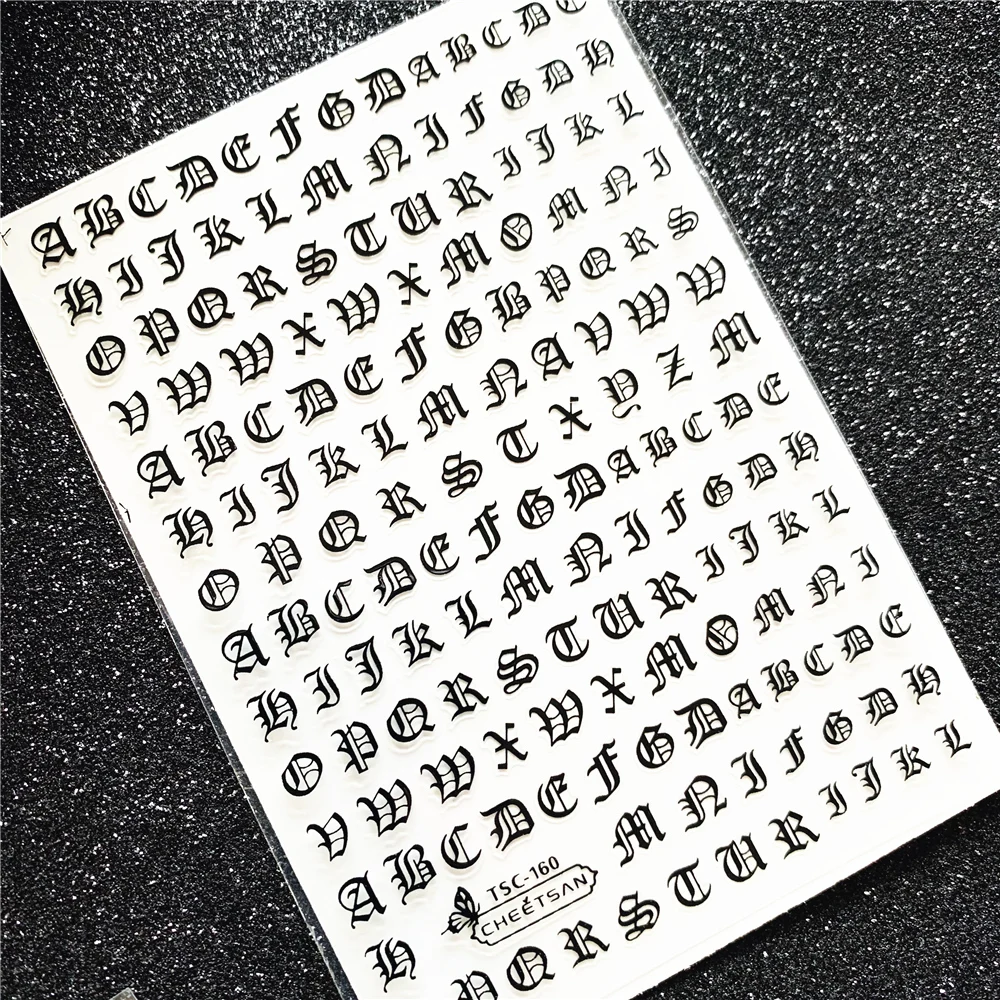 A B C D E F G D A B C D E
H I J K L M N I F G D H
O P Q R S T U R I J K L
V W W X W X M O M N I
A B C D E F G B P Q R S
H I J K L M N A V W W
O P Q R S T X Y Z M
A B C D E F G D A B C D E
H I J K L M N I F G D H
O P Q R S T U R I J K L
V W W X W X M O M N I
A B C D E F G D A B C D E
H M N I F G D H
TSC-160
CHEETSAN
P Q R S T U R I J K L